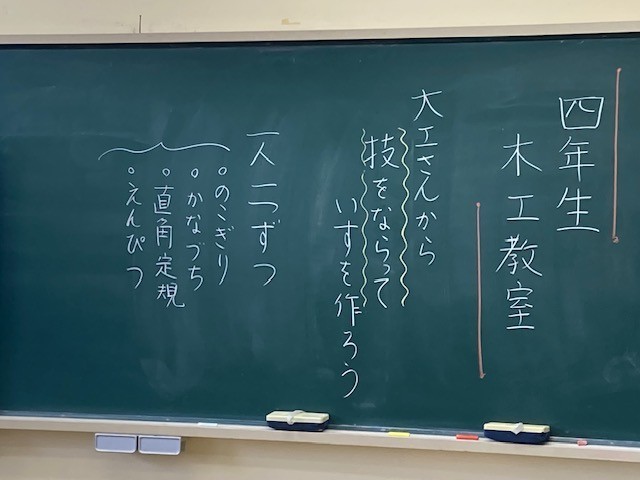 四年生
木工教室
大工さんから
技をならって
いすを作ろう
一人一つずつ
・のこぎり
・かなづち
・直角定規
・えんぴつ